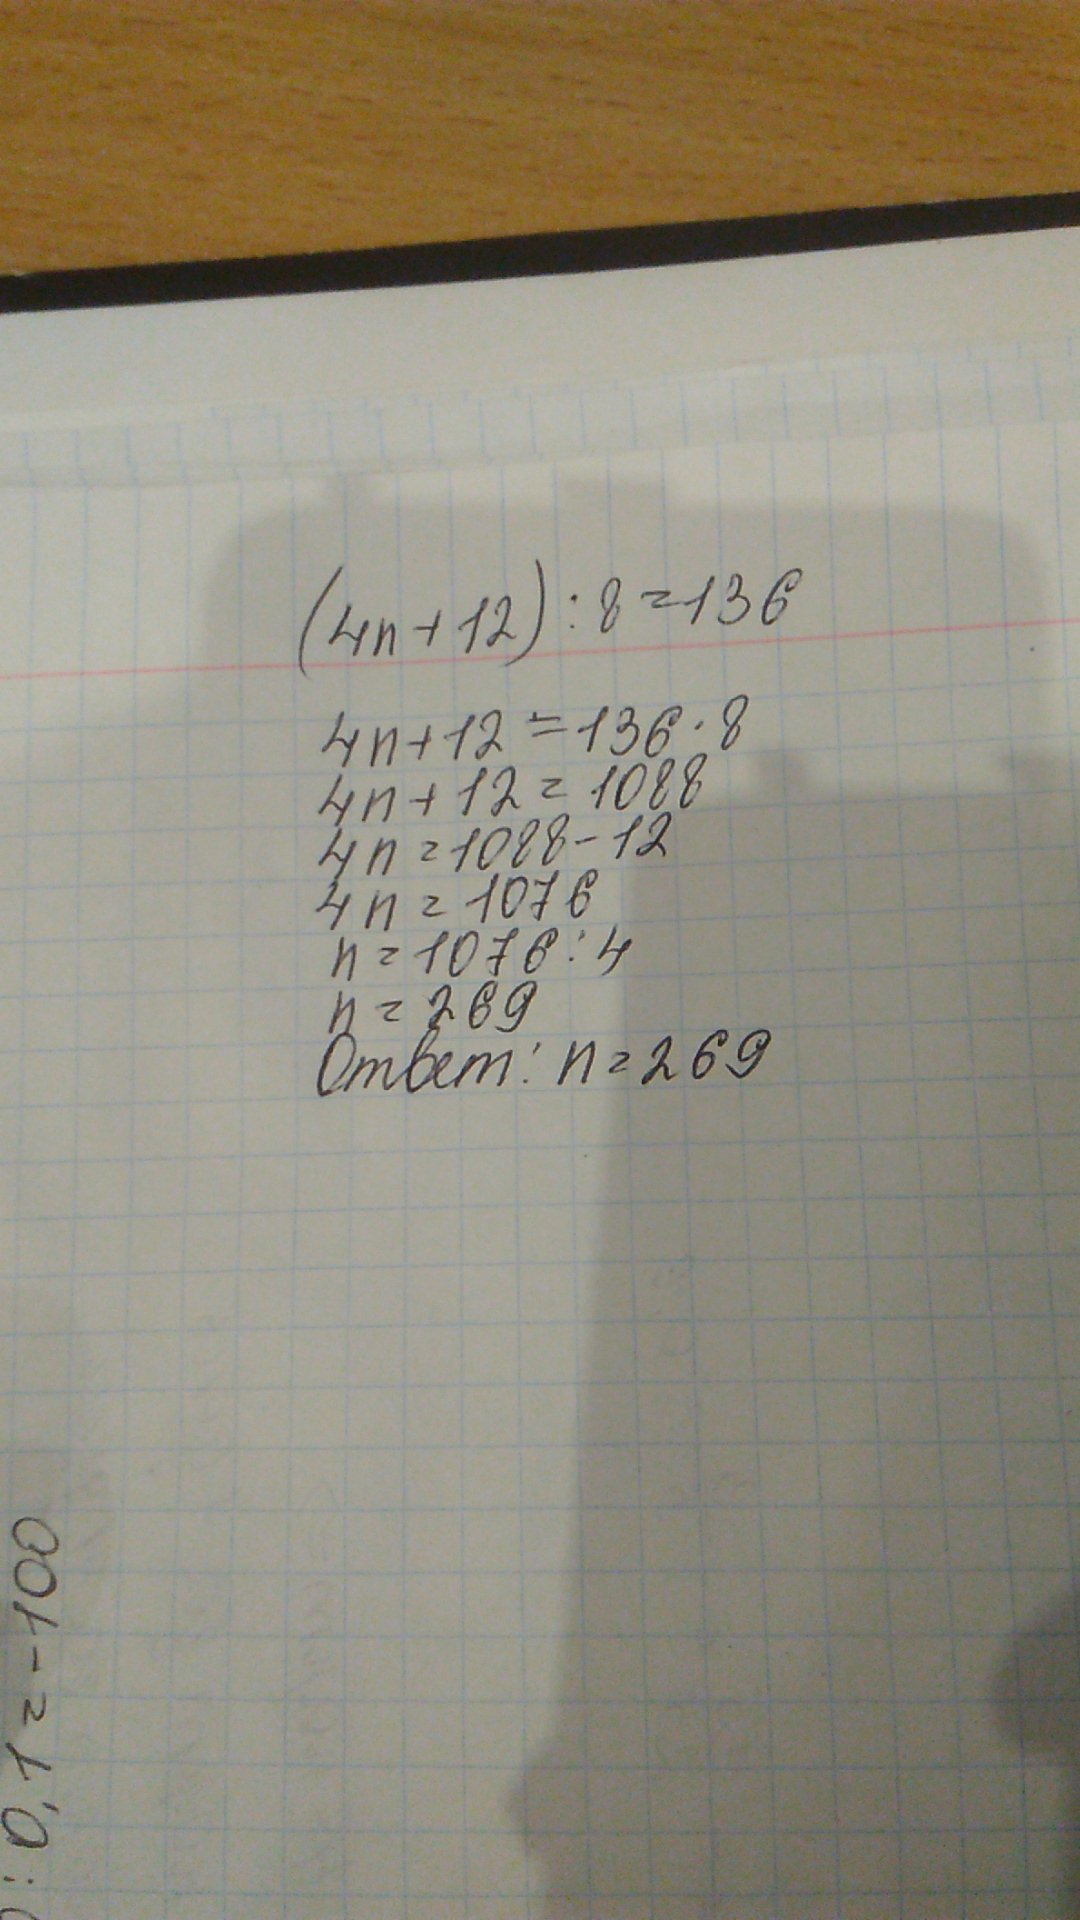 (4n+12):8=136
4n+12=136·8
4n+12=1088
4n=1088-12
4n=1076
n=1076:4
n=269
Ответ: n=269
:0,1=-100